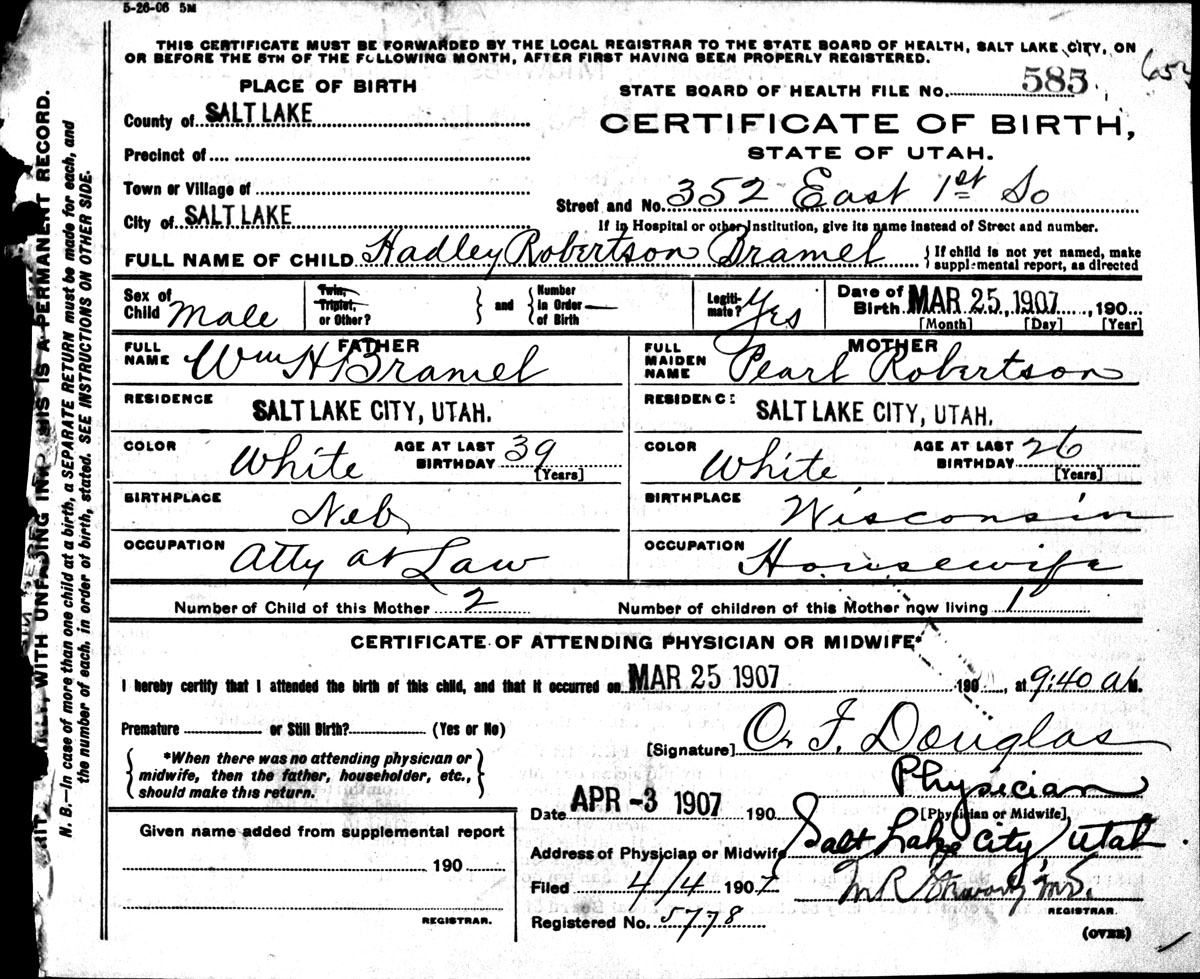 5-26-06 5M
THIS CERTIFICATE MUST BE FORWARDED BY THE LOCAL REGISTRAR TO THE STATE BOARD OF HEALTH, SALT LAKE CITY, ON
OR BEFORE THE 5TH OF THE FOLLOWING MONTH, AFTER FIRST HAVING BEEN PROPERLY REGISTERED.
PLACE OF BIRTH
County of SALT LAKE
Precinct of
Town or Village of
City of SALT LAKE
STATE BOARD OF HEALTH FILE No. 585
CERTIFICATE OF BIRTH,
STATE OF UTAH.
Street and No. 352 East 1st So
If in Hospital or other Institution, give its name instead of Street and number.
FULL NAME OF CHILD Hadley Robertson Bramel
{If child is not yet named, make
supplemental report, as directed
Sex of Child Male
Twin, Triplet, or Other? } and { Number in Order of Birth —
Legitimate? Yes
Date of Birth MAR 25, 1907, 190
[Month] [Day] [Year]
FATHER
FULL NAME Wm H Bramel
RESIDENCE SALT LAKE CITY, UTAH.
COLOR White AGE AT LAST BIRTHDAY 39 [Years]
BIRTHPLACE Neb
OCCUPATION Atty at Law
MOTHER
FULL MAIDEN NAME Pearl Robertson
RESIDENCE SALT LAKE CITY, UTAH.
COLOR White AGE AT LAST BIRTHDAY 26 [Years]
BIRTHPLACE Wisconsin
OCCUPATION Housewife
Number of Child of this Mother 2 Number of children of this Mother now living 1
CERTIFICATE OF ATTENDING PHYSICIAN OR MIDWIFE*
I hereby certify that I attended the birth of this child, and that it occurred on MAR 25 1907 190, at 9:40 a M.
Premature or Still Birth? (Yes or No)
*When there was no attending physician or
midwife, then the father, householder, etc.,
should make this return.
[Signature] O. F. Douglas
Physician
[Physician or Midwife]
Date APR -3 1907 190
Address of Physician or Midwife Salt Lake City Utah
Given name added from supplemental report
190
REGISTRAR.
Filed 4/4 1907
M R
REGISTRAR.
Registered No. 5778
(OVER)
WITH UNFADING INK THIS IS A PERMANENT RECORD.
N. B.—In case of more than one child at a birth, a SEPARATE RETURN must be made for each, and
the number of each, in order of birth, stated. SEE INSTRUCTIONS ON OTHER SIDE.